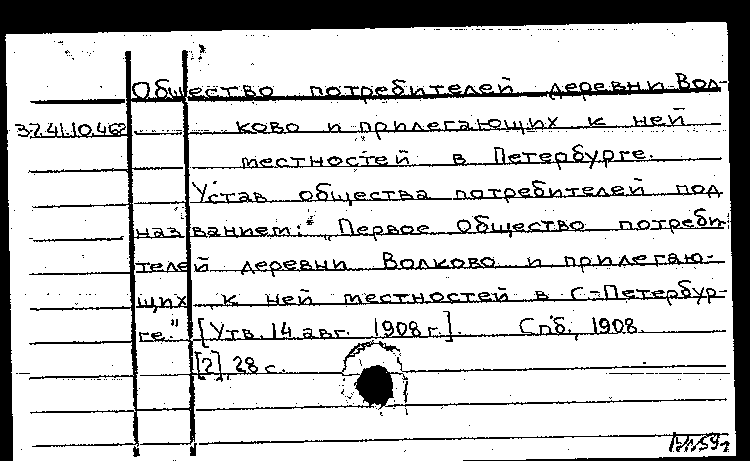 Общество потребителей деревни Вол-
37.41.10.462 ково и прилегающих к ней
местностей в Петербурге.
Устав общества потребителей под
названием: "Первое Общество потреби-
телей деревни Волково и прилегаю-
щих к ней местностей в С-Петербур-
ге." [Утв. 14 авг. 1908 г.]. Спб., 1908.
[2], 28 с.